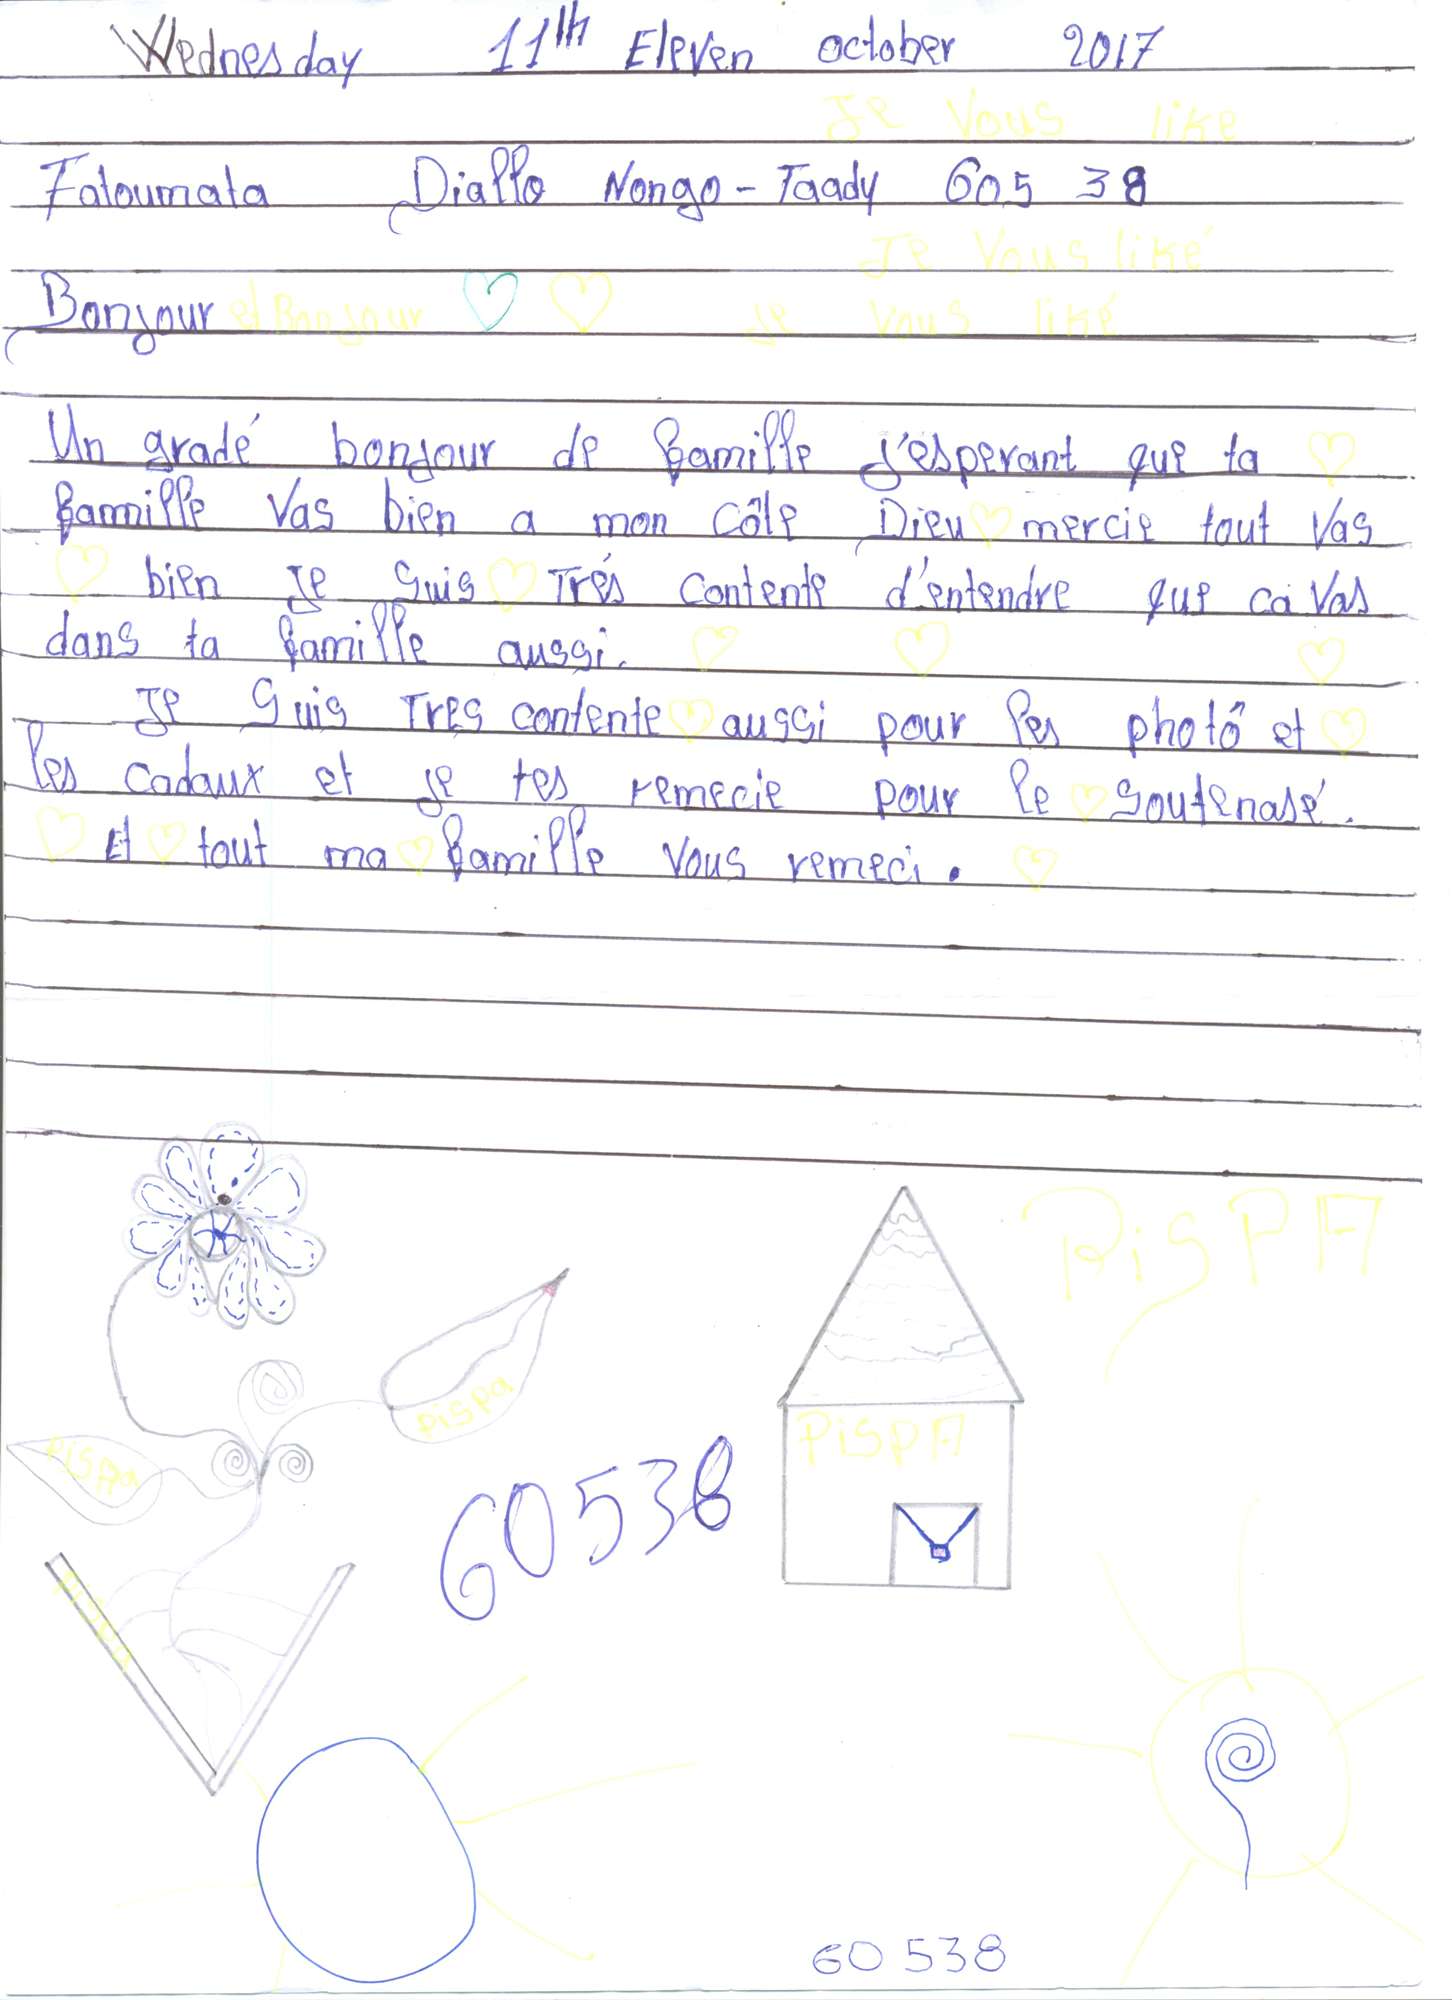 Wednesday 11th Eleven october 2017
Je Vous like
Fatoumata Diallo Nongo-Taady 605 38
Je Vous liké
Bonjour et Bonjour Je vous liké
Un gradé bonjour de famille j'esperant que ta
famille Vas bien a mon côte Dieu mercie tout Vas
bien Je suis Trés contente d'entendre que ca Vas
dans ta famille aussi.
Je suis Tres contente aussi pour les photô et
les cadaux et je tes remecie pour le soutenasé.
Et tout ma famille Vous remeci.
PiSPA
pispa
PiSPA
PiSPAa
60538
60 538